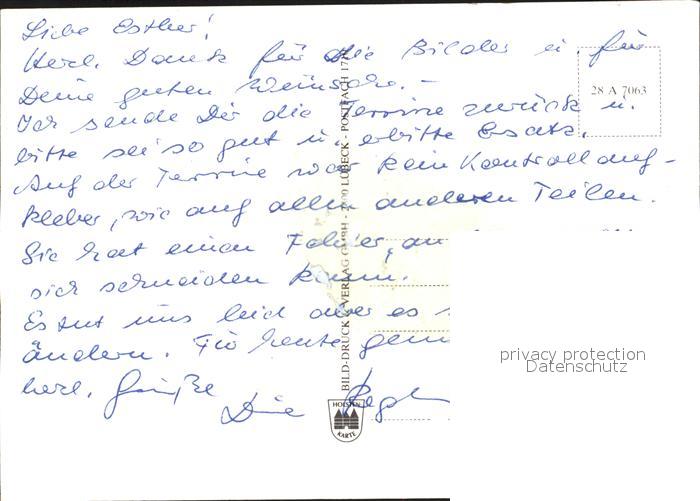 Liebe Esther!
Herzl. Dank für die Bilder u. für
Deine guten Wünsche. –
Ich sende Dir die Terrine zurück u.
bitte sei so gut u. erbitte Ersatz.
Auf der Terrine war kein Kontrollauf-
kleber, wie auf allen anderen Teilen.
Sie hat einen Fehler, an
sich schneiden kann.
Es tut uns leid aber es
ändern. Für heute
herzl. Grüße
28 A 7063
BILD-DRUCK & VERLAG GMBH - 2400 LÜBECK - POSTFACH
HOLSTEN
KARTE
privacy protection
Datenschutz